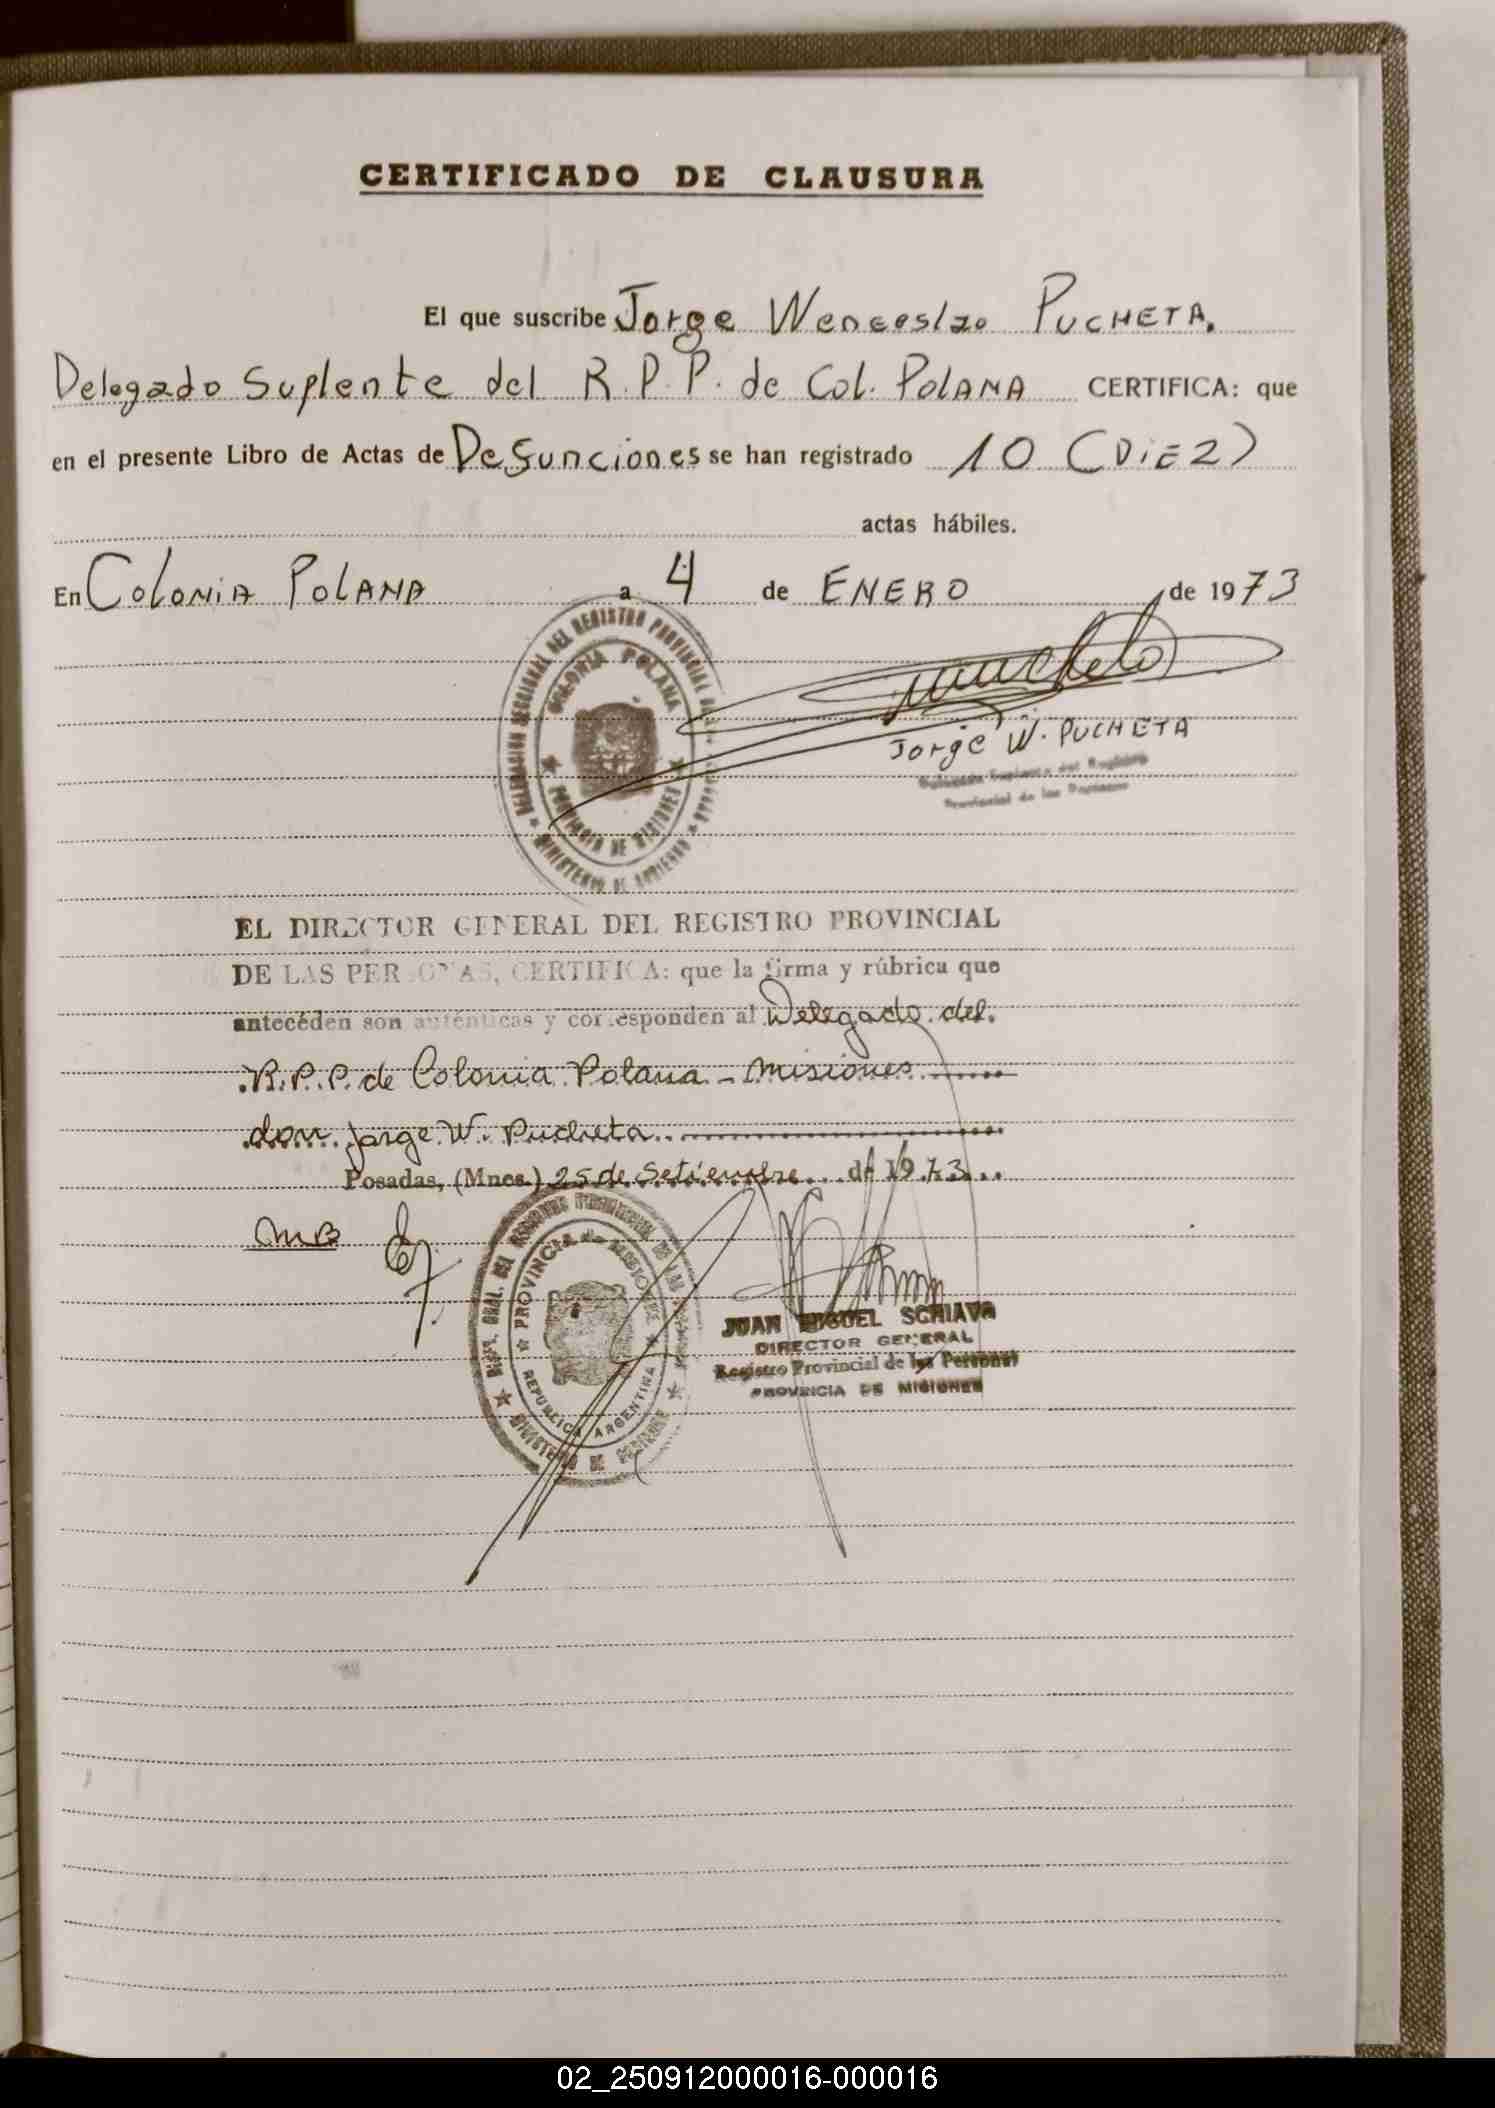 CERTIFICADO DE CLAUSURA
El que suscribe Jorge Wenceslao PUCHETA.
Delegado Suplente del R.P.P. de Col. POLANA CERTIFICA: que
en el presente Libro de Actas de Defunciones se han registrado 10 (DiEZ)
actas hábiles.
En COLONiA POLANA a 4 de ENERO de 1973
DELEGACION SECCIONAL DEL REGISTRO PROVINCIAL
COLONIA POLANA
PROVINCIA DE MISIONES
MINISTERIO DE GOBIERNO
Jorge W. PUCHETA
Delegado Suplente del Registro
Provincial de las Personas
EL DIRECTOR GENERAL DEL REGISTRO PROVINCIAL
DE LAS PERSONAS, CERTIFICA: que la firma y rúbrica que
antecéden son auténticas y corresponden al Delegado del
R.P.P. de Colonia Polana - Misiones
don Jorge W. Pucheta
Posadas, (Mnes.) 25 de Setiembre de 1973
MB
DIREC. GRAL. DEL REGISTRO PROVINCIAL DE LAS
PROVINCIA de MISIONES
REPUBLICA ARGENTINA
MINISTERIO DE GOBIERNO
JUAN MIGUEL SCHIAVO
DIRECTOR GENERAL
Registro Provincial de las Personas
PROVINCIA DE MISIONES
02_250912000016-000016